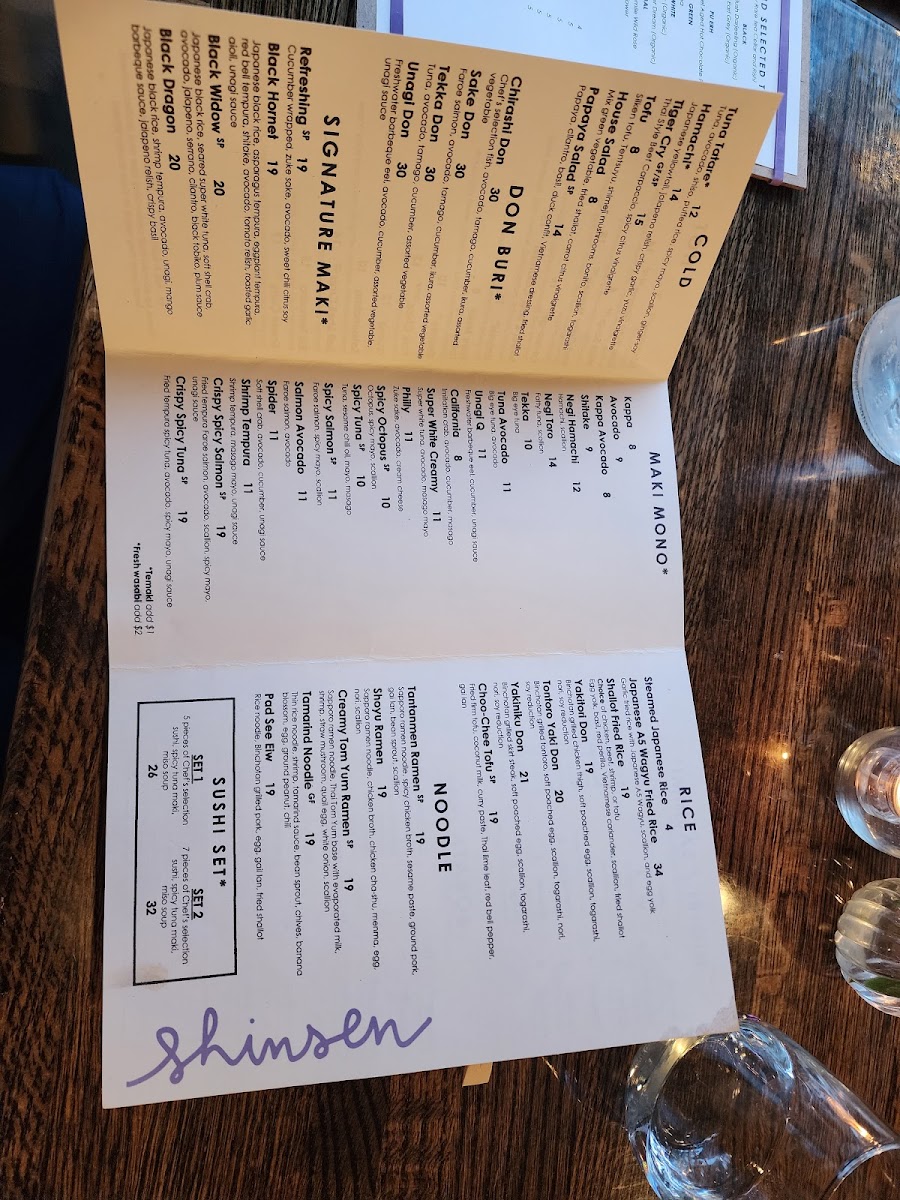 COLD
Tuna Tatare* 12
Tuna, avocado, shiso, puffed rice, spicy mayo, scallion, ginger soy
Hamachi* 14
Japanese yellowtail, jalapeno relish, crispy garlic, yuzu vinaigrette
Tiger Cry GF/SP 15
Thai Style Beef Carpaccio, spicy citrus vinaigrette
Tofu 8
Silken tofu, Tentsuyu, shimeji mushrooms, bonito, scallion, togarashi
House Salad 8
Mix green vegetable, fried shallot, carrot citrus vinaigrette
Papaya Salad SP 14
Papaya, cilantro, basil, duck confit, Vietnamese dressing, fried shallot
DON BURI*
Chirashi Don 30
Chef's selection fish, avocado, tamago, cucumber, ikura, assorted
vegetable
Sake Don 30
Faroe salmon, avocado, tamago, cucumber, ikura, assorted vegetable
Tekka Don 30
Tuna, avocado, tamago, cucumber, assorted vegetable
Unagi Don 30
Freshwater barbeque eel, avocado, cucumber, assorted vegetable,
unagi sauce
SIGNATURE MAKI*
Refreshing SP 19
Cucumber wrapped, zuke sake, avocado, sweet chili citrus soy
Black Hornet 19
Japanese black rice, asparagus tempura, eggplant tempura,
red bell tempura, shiitake, avocado, tomato relish, roasted garlic
aioli, unagi sauce
Black Widow SP 20
Japanese black rice, seared super white tuna, soft shell crab,
avocado, jalapeno, serrano, cilantro, black tobiko, plum sauce
Black Dragon 20
Japanese black rice, shrimp tempura, avocado, unagi, mango
barbeque sauce, jalapeno relish, crispy basil
MAKI MONO*
Kappa 8
Avocado 9
Kappa Avocado 8
Shitake 9
Negi Hamachi 12
Hamachi, scallion
Negi Toro 14
Fatty tuna, scallion
Tekka 10
Big eye tuna
Tuna Avocado 11
Big eye tuna, avocado
Unagi Q 11
Freshwater barbeque eel, cucumber, unagi sauce
California 8
Imitation crab, avocado, cucumber, masago
Super White Creamy 11
Super white tuna, avocado, masago mayo
Philly 11
Zuke sake, avocado, cream cheese
Spicy Octopus SP 10
Octopus, spicy mayo, scallion
Spicy Tuna SP 10
Tuna, sesame chili oil, mayo, masago
Spicy Salmon SP 11
Faroe salmon, spicy mayo, scallion
Salmon Avocado 11
Faroe salmon, avocado
Spider 11
Soft shell crab, avocado, cucumber, unagi sauce
Shrimp Tempura 11
Shrimp tempura, masago mayo, unagi sauce
Crispy Spicy Salmon SP 19
Fried tempura Faroe salmon, avocado, scallion, spicy mayo,
unagi sauce
Crispy Spicy Tuna SP 19
Fried tempura spicy tuna, avocado, spicy mayo, unagi sauce
*Temaki add $1
*Fresh wasabi add $2
RICE
Steamed Japanese Rice 4
Japanese A5 Wagyu Fried Rice 34
Garlic fried rice with Japanese A5 Wagyu, scallion, and egg yolk
Shallot Fried Rice 19
Choice of chicken, beef, shrimp, or tofu
Egg yolk, basil, red perilla, Vietnamese coriander, scallion, fried shallot
Yakitori Don 19
Binchotan grilled chicken thigh, soft poached egg, scallion, togarashi,
nori, soy reduction
Tontoro Yaki Don 20
Binchotan grilled tontoro, soft poached egg, scallion, togarashi, nori,
soy reduction
Yakiniku Don 21
Binchotan grilled skirt steak, soft poached egg, scallion, togarashi,
nori, soy reduction
Choo-Chee Tofu SP 19
Fried firm tofu, coconut milk, curry paste, Thai lime leaf, red bell pepper,
gai lan
NOODLE
Tantanmen Ramen SP 19
Sapporo ramen noodle, spicy chicken broth, sesame paste, ground pork,
gai lan, bean sprout, scallion
Shoyu Ramen 19
Sapporo ramen noodle, chicken broth, chicken cha-shu, menma, egg,
nori, scallion
Creamy Tom Yum Ramen SP 19
Sapporo ramen noodle, Thai Tom Yum base with evaporated milk,
shrimp, straw mushroom, quail egg, white onion, scallion
Tamarind Noodle GF 19
Thin rice noodle, shrimp, tamarind sauce, bean sprout, chives, banana
blossom, egg, ground peanut, chili
Pad See Eiw 19
Rice noodle, Binchotan grilled pork, egg, gai lan, fried shallot
SUSHI SET*
SET 1
5 pieces of Chef's selection
sushi, spicy tuna maki,
miso soup
26
SET 2
7 pieces of Chef's selection
sushi, spicy tuna maki,
miso soup
32
shinsen
SELECTED
BLACK
PU ERH
GREEN
WHITE